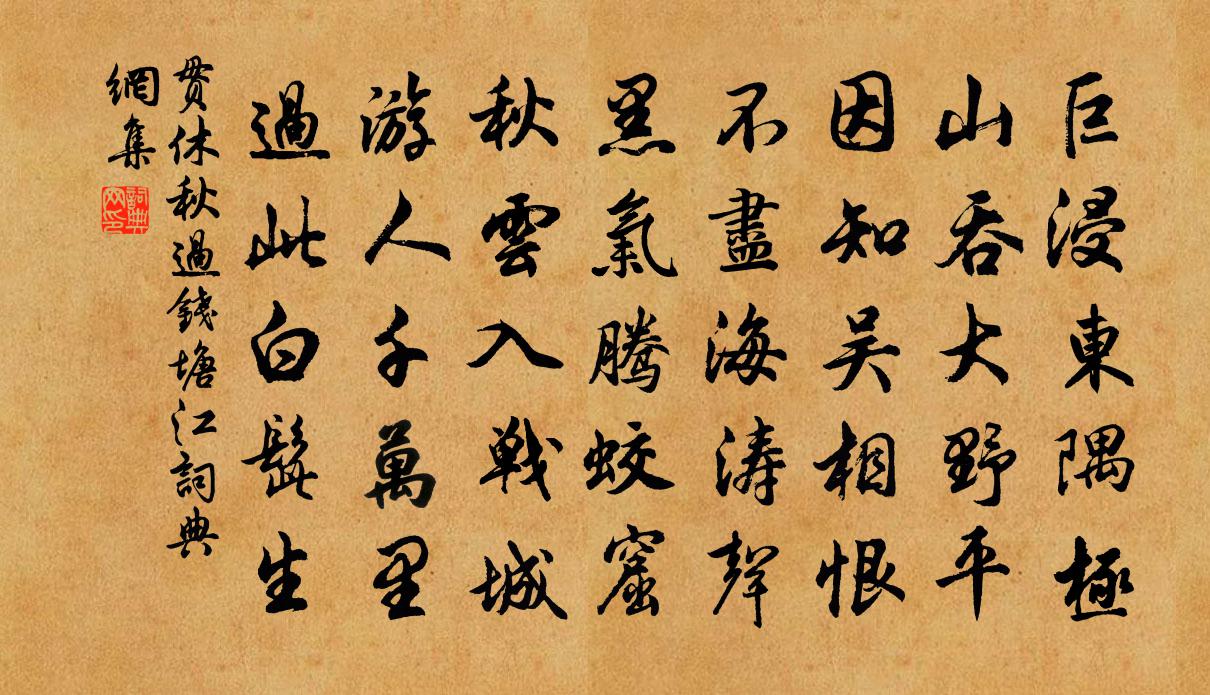 巨浸東隅極
山吞大野平
因知吳相恨
不盡海濤聲
黑氣騰蛟窟
秋雲入戰城
游人千萬里
過此白髭生
貫休秋過錢塘江詞典
網集
詞典網印